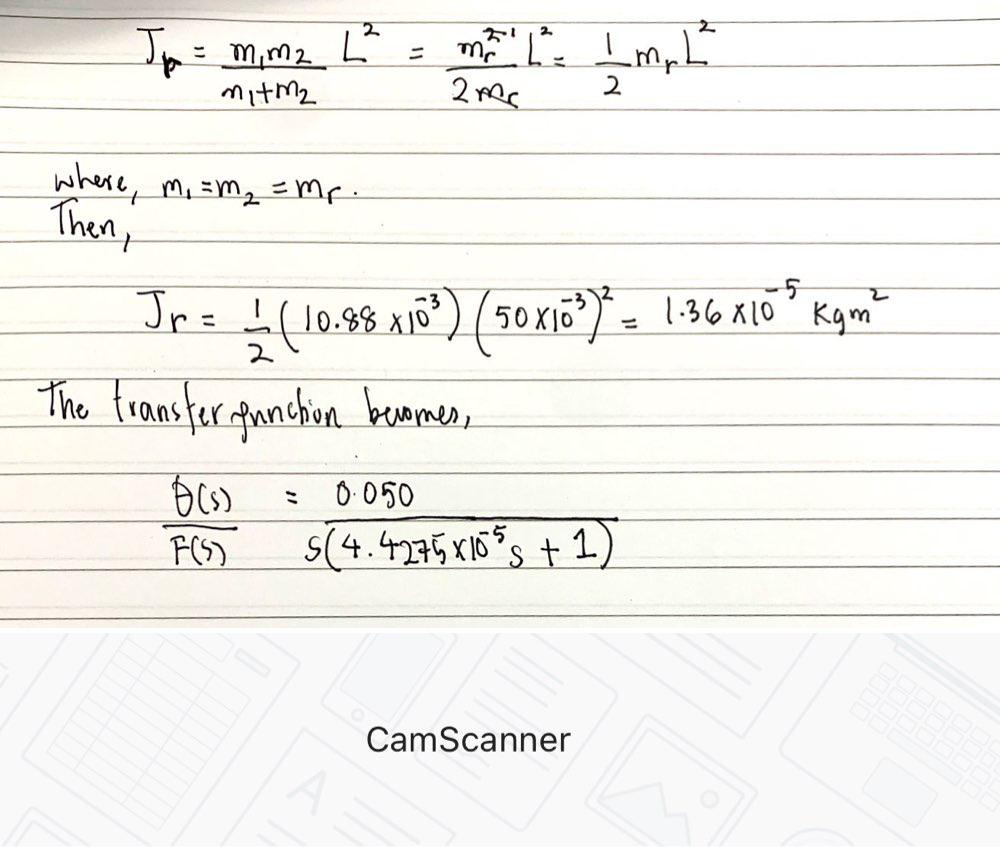 Jr = m₁m₂/(m₁+m₂) L² = mr²⁻¹/(2mr) L² = 1/2 mr L²
where, m₁ = m₂ = mr.
Then,
Jr = 1/2 (10.88 x10⁻³) (50x10⁻³)² = 1.36 x10⁻⁵ Kgm²
The transfer function becomes,
θ(s)/F(s) = 0.050/(s(4.4275x10⁻⁵s + 1))
CamScanner